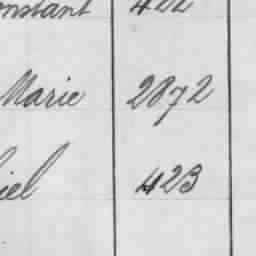 onstant 422
Marie 2872
iel 423